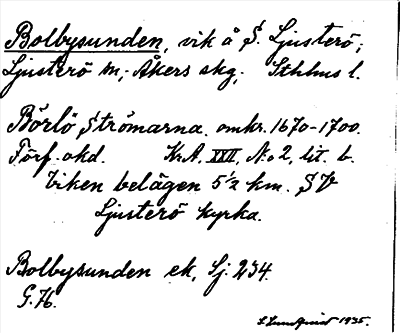 Bolbysunden, vik å S. Ljusterö,
Ljusterö sn, Åkers skg, Sthlms l.
Börlö Strömarna. omkr. 1670-1700.
Förf. okd. Kr.A. XXII, No 2, lit. b.
Viken belägen 5 1/2 km. SV
Ljusterö kyrka.
Bolbysunden ek. Sj. 234.
G. 76.
S. Lundquist 1935.